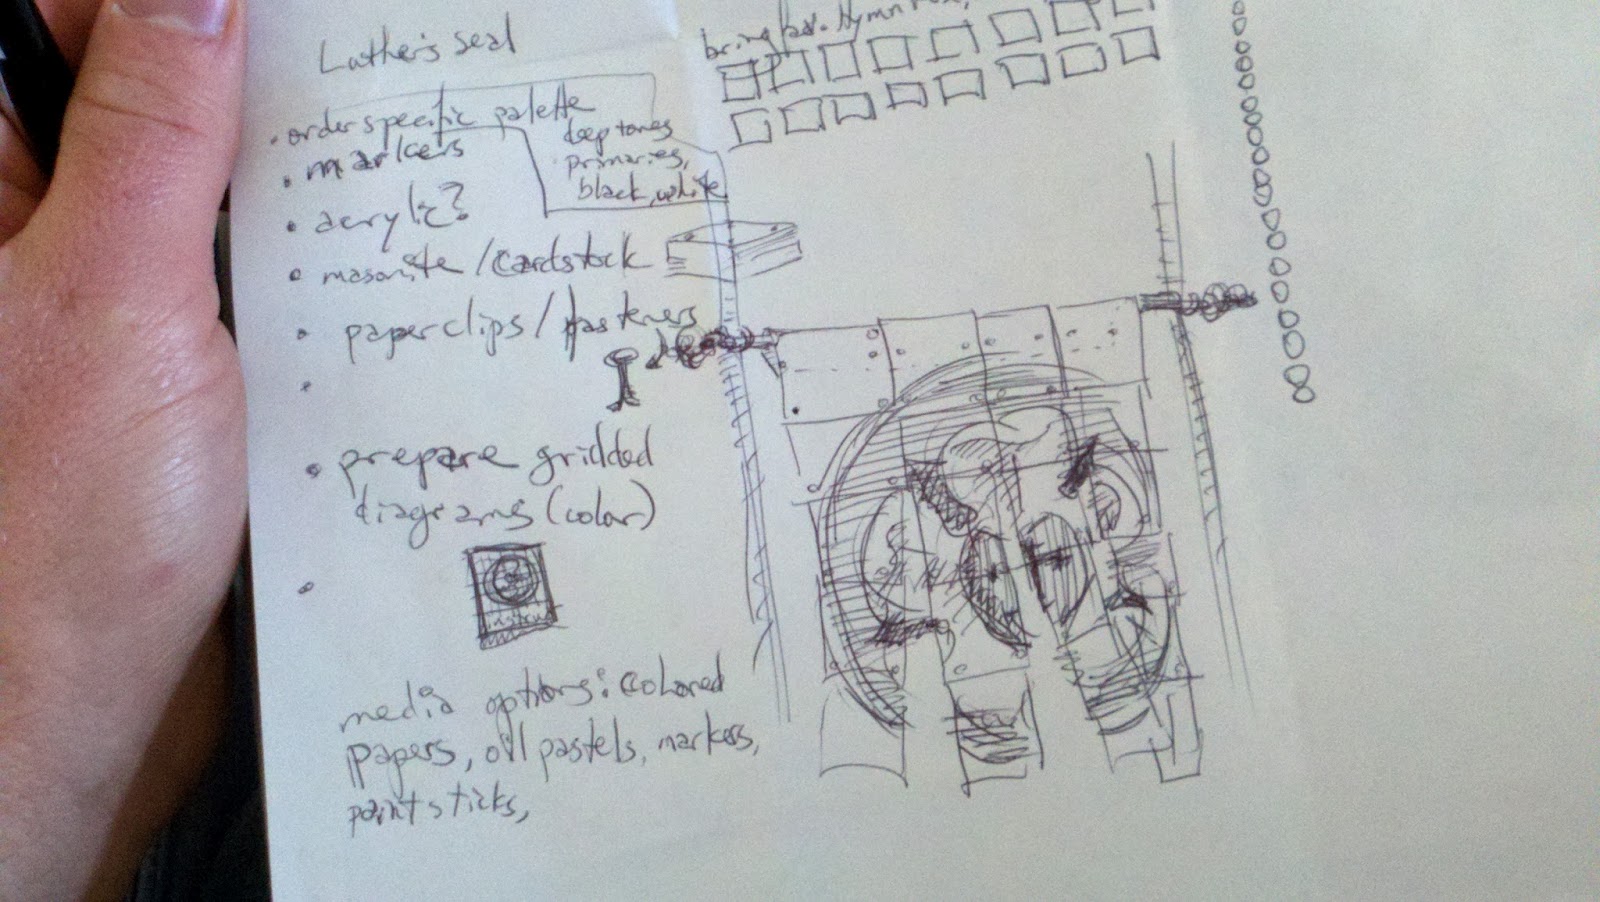 Luther's seal
• order specific palette
deep tones
primaries,
black, white
• markers
• acrylic?
• masonite / cardstock
• paperclips / fasteners
• prepare gridded
diagrams (color)
media options: colored
papers, oil pastels, markers,
paint sticks,
bring
Hymn